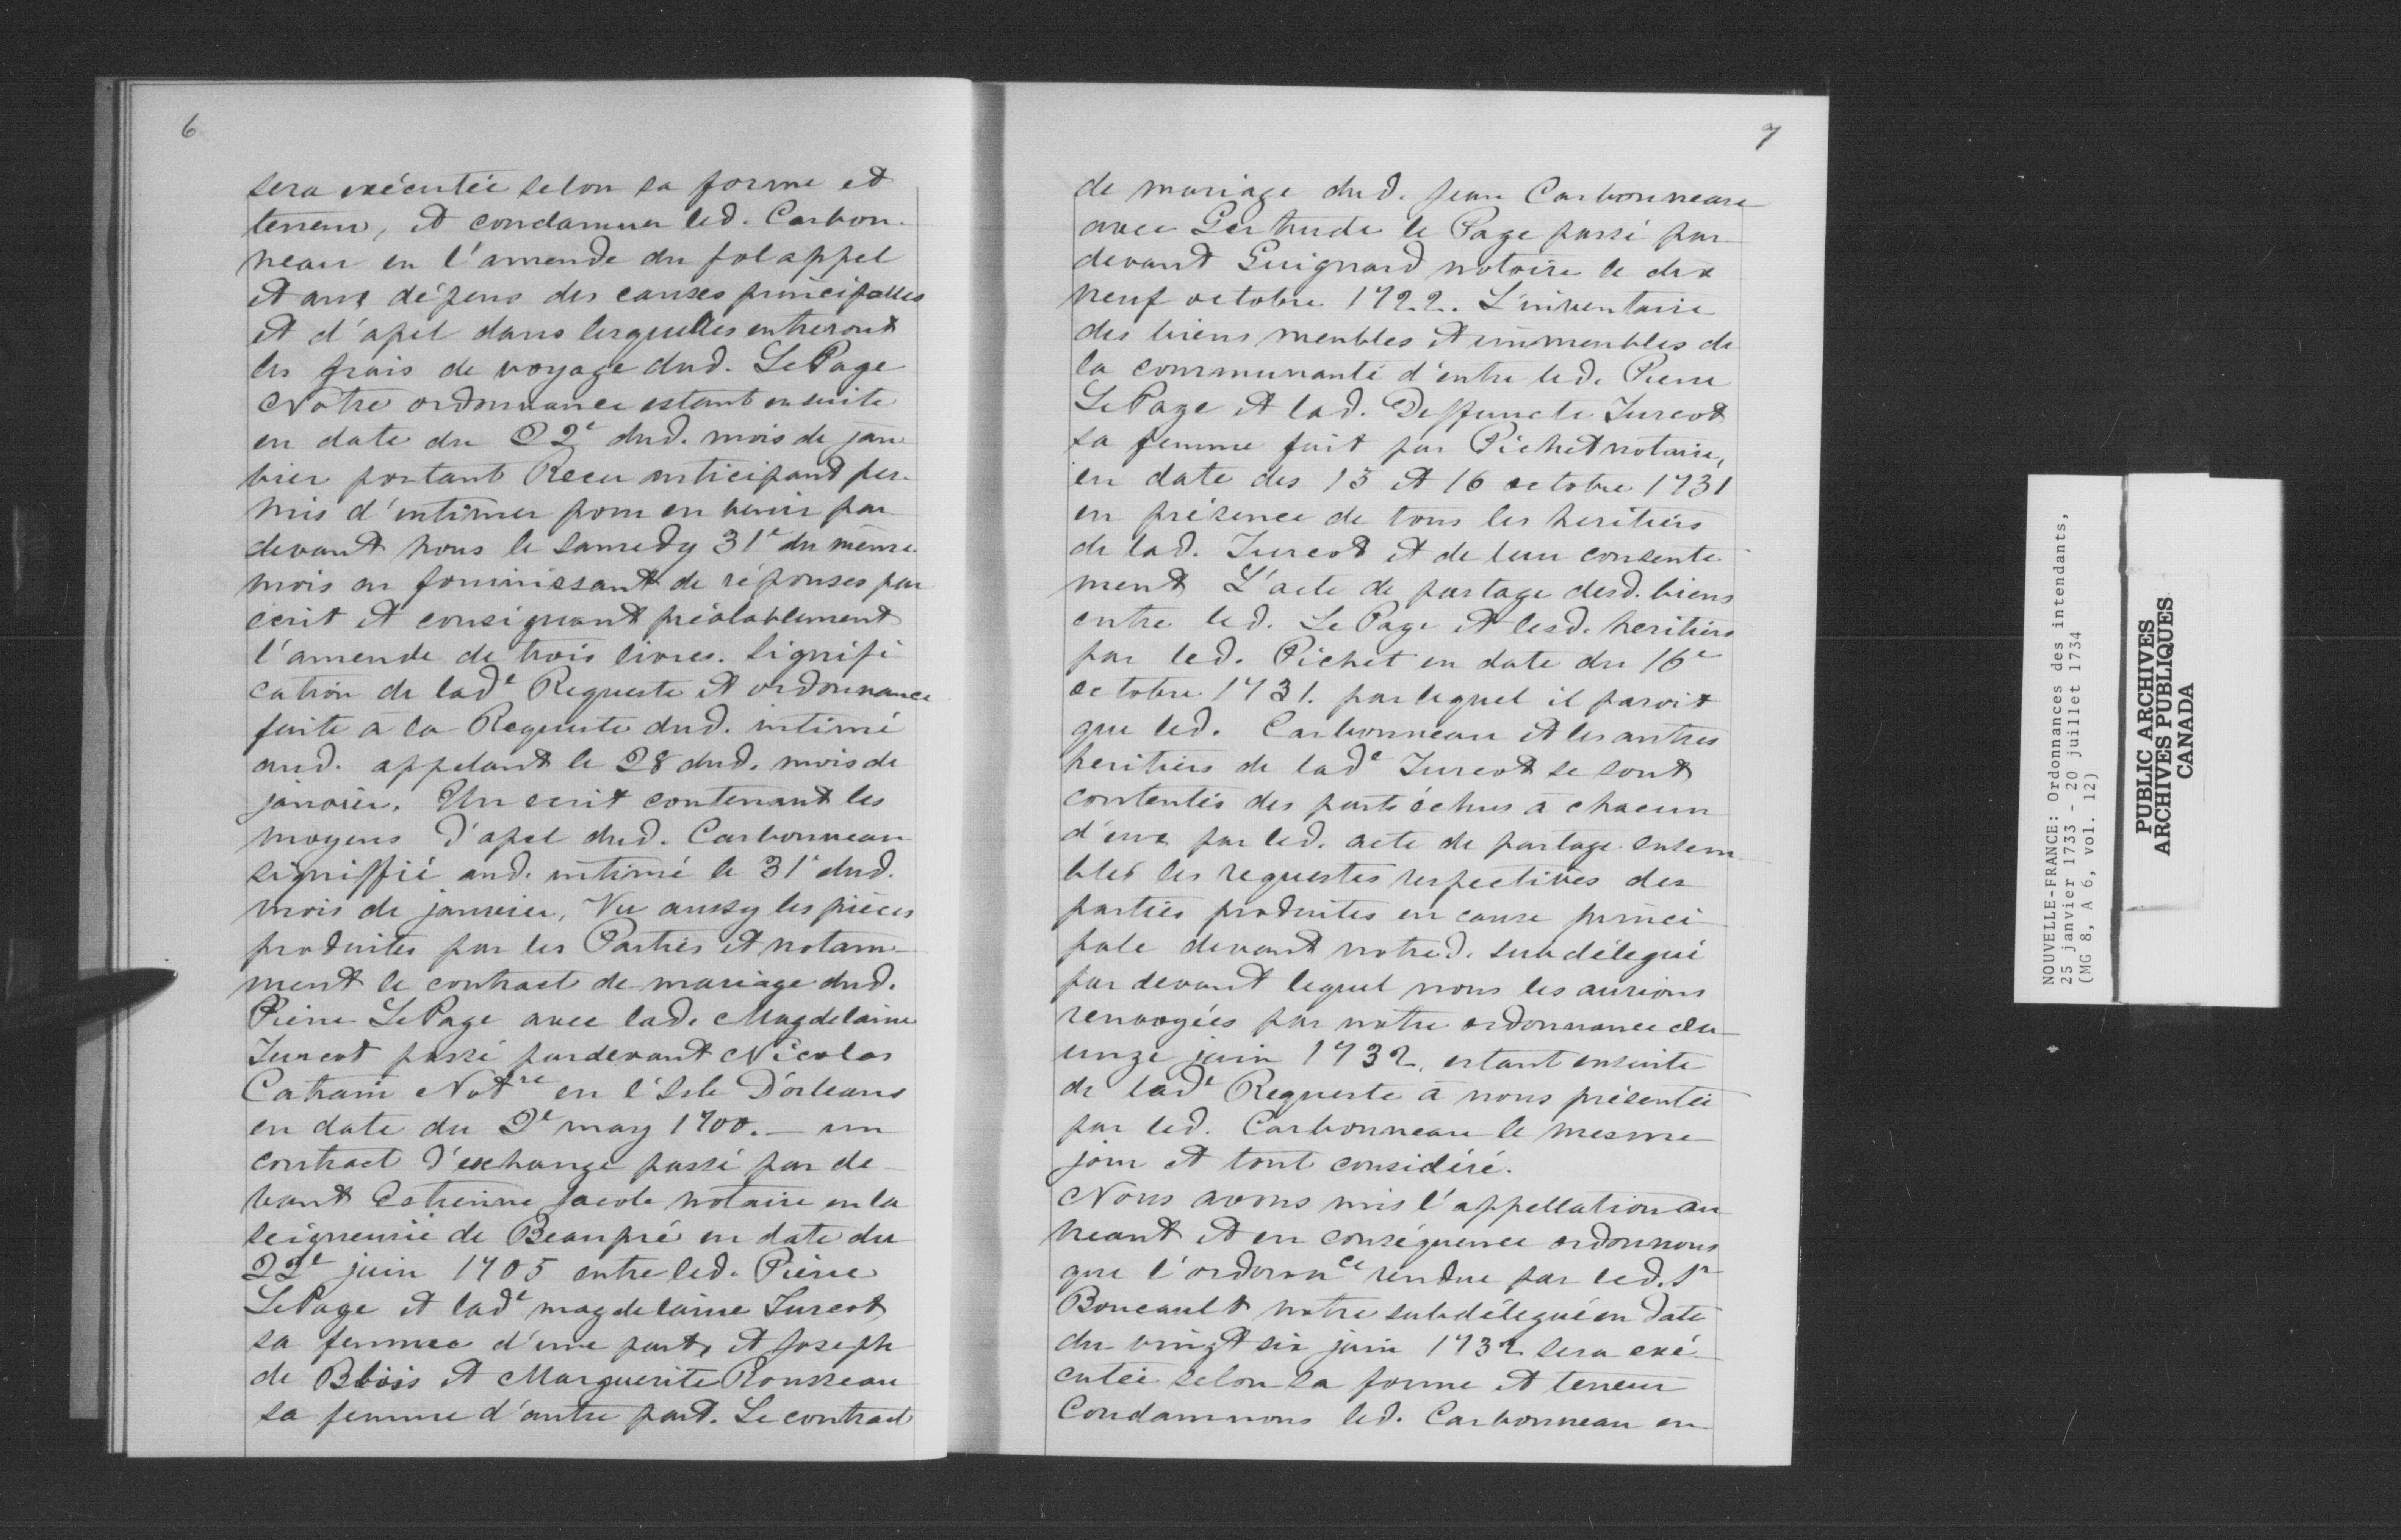 6
sera exécutée selon sa forme et
teneur, et condamner led. Carbon-
neau en l'amende du fol appel
et aux dépens des causes principalles
et d'apel dans lesquelles entreront
les frais de voyage dud. Le Page
Notre ordonnance estant ensuite
en date du 22e dud. mois de jan
vier portant Recu anticipant per-
mis d'intimer pour en venir par
devant nous le samedy 31e du même
mois en fournissant de réponses par
écrit et consignant préalablement
l'amende de trois livres. Signifi
cation de lade Requeste et ordonnance
faite a la Requeste dud. intimé
aud. appelant le 28 dud. mois de
janvier. Un ecrit contenant les
moyens d'apel dud. Carbonneau
signiffié aud. intimé le 31e dud.
mois de janvier, Vu aussy les pièces
produites par les Parties et notam-
ment le contract de mariage dud.
Pierre LePage avec lad. Magdelaine
Turcot passé pardevant Nicolas
Notre en l'Isle D'orleans
en date du 2e may 1700. — un
contract d'exchange passé par de-
vant Estienne Jacob notaire en la
seigneurie de Beaupré en date du
22e juin 1705 entre led. Pierre
LePage et lade magdelaine Turcot
sa femme d'une part, et Joseph
de Blois et Marguerite Rousseau
sa femme d'autre part. Le contract
7
de mariage dud. Jean Carbonneau
avec Gertrude le Page passé par
devant Guignard notaire le dix
neuf octobre 1722. L'inventaire
des biens meubles et immeubles de
la communauté d'entre led. Pierre
LePage et lad. Deffuncte Turcot
sa femme fait par Pichet notaire,
en date des 15 et 16 octobre 1731
en présence de tous les heritiers
de lad. Turcot et de leur consente-
ment L'acte de partage desd. biens
entre led. Le Page et lesd. heritiers
par led. Pichet en date du 16e
octobre 1731. par lequel il paroit
que led. Carbonneau et les autres
heritiers de lade Turcot se sont
contentés des parts échus à chacun
d'eux par led. acte de partage ensem-
bles les requestes respectives des
parties produites en cause princi-
pale devant notred. subdélégué
par devant lequel nous les aurions
renvoyées par notre ordonnance du
unze juin 1732, estant ensuite
de lade Requeste à nous présentée
par led. Carbonneau le mesme
jour et tout considéré.
Nous avons mis l'appellation au
neant et en conséquence ordonnons
que l'ordonnce rendue par led. Sr
Boucault notre subdélégué en date
du vingt six juin 1732 sera exé-
cutée selon sa forme et teneur
Condamnons led. Carbonneau en
NOUVELLE-FRANCE: Ordonnances des intendants,
25 janvier 1733 - 20 juillet 1734
(MG 8, A 6, vol. 12)
PUBLIC ARCHIVES
ARCHIVES PUBLIQUES
CANADA